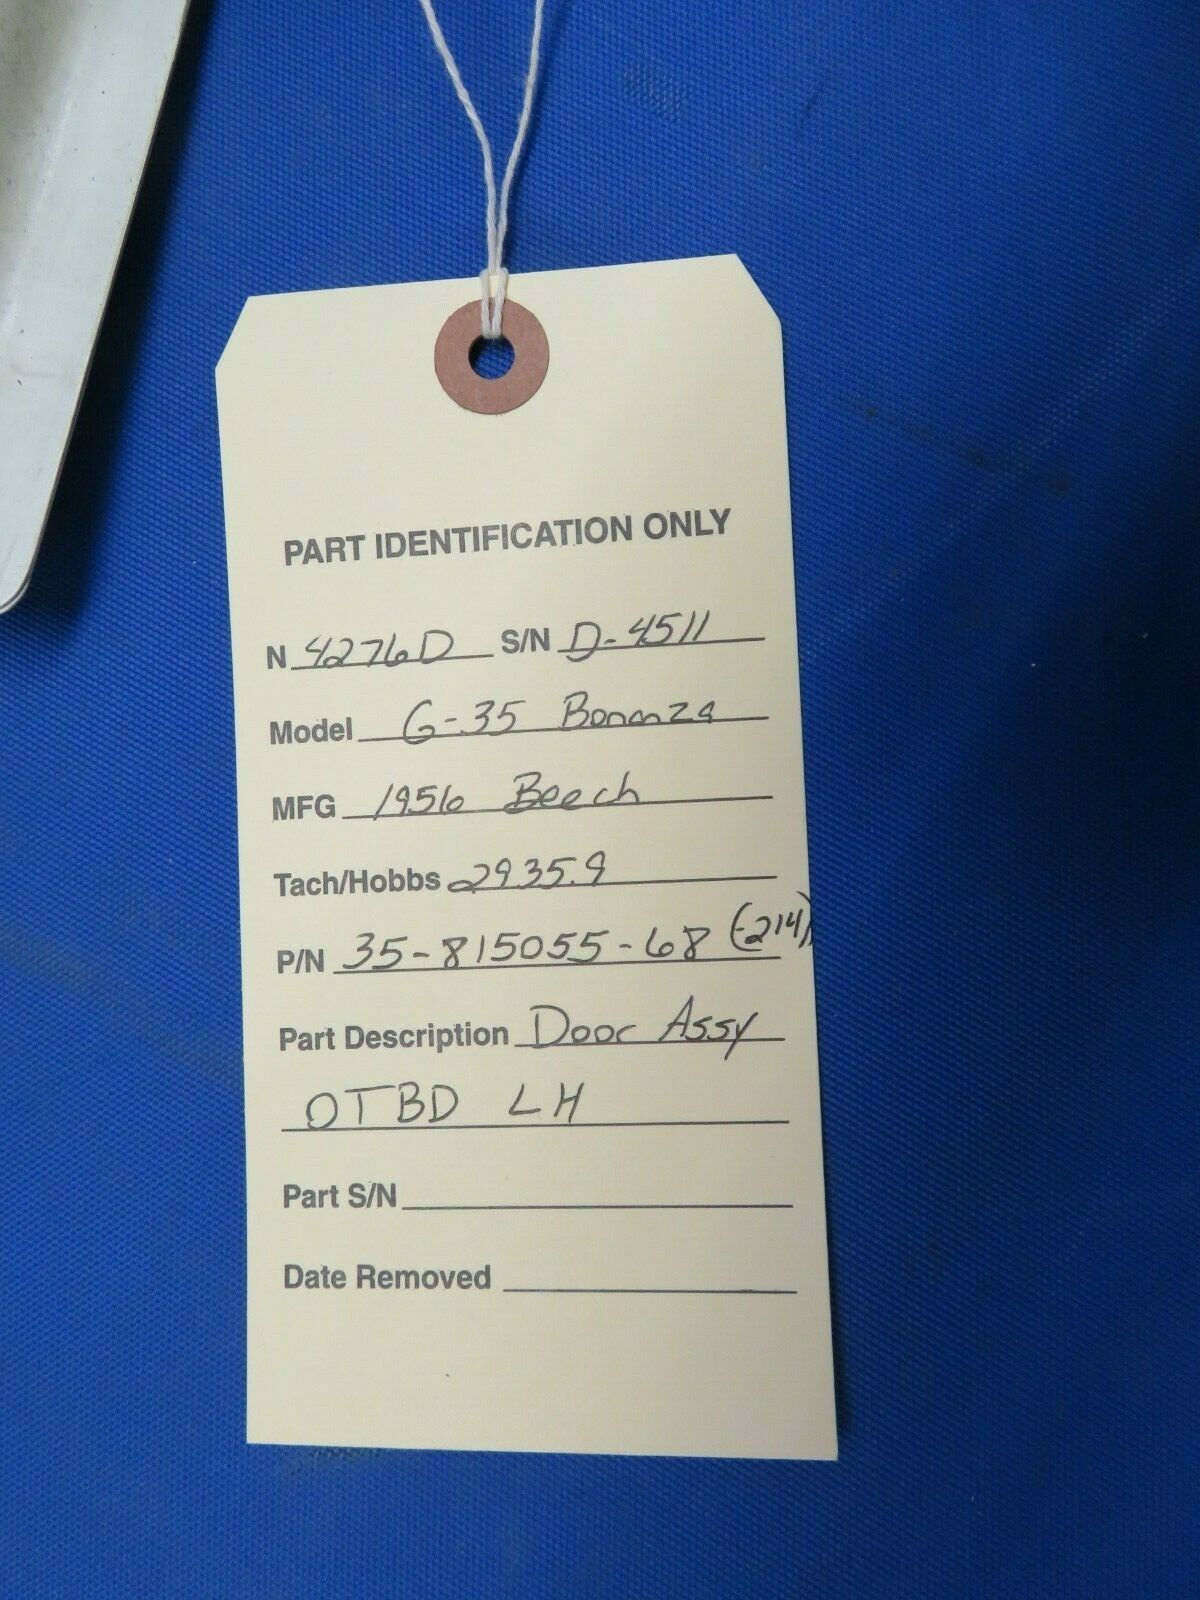 PART IDENTIFICATION ONLY
N 4276D S/N D-4511
Model G-35 Bonanza
MFG 1956 Beech
Tach/Hobbs 2935.9
P/N 35-815055-68 (-214)
Part Description Door Assy
OTBD LH
Part S/N
Date Removed